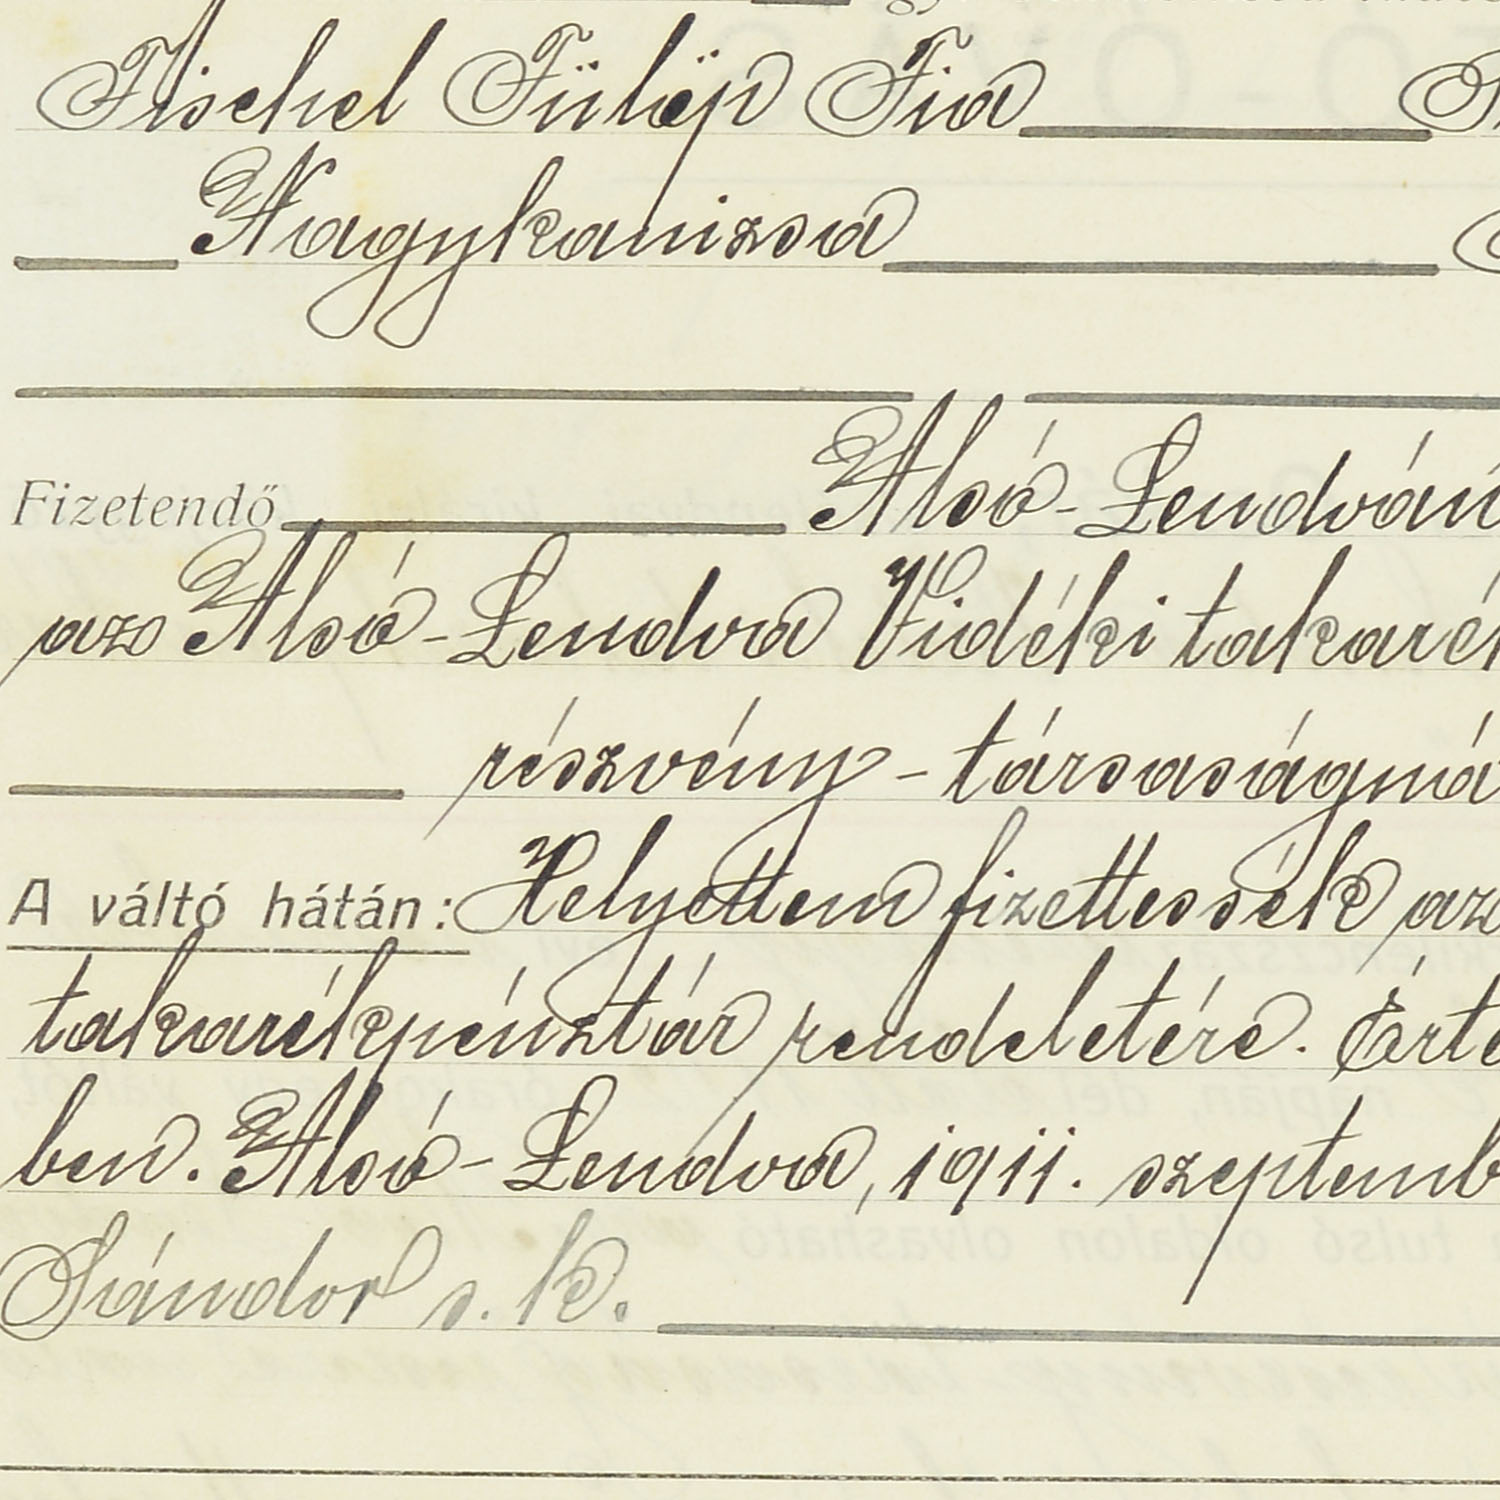 Fischel Fülöp Fia
Nagykanizsa
Fizetendő Alsó-Lendván
az Alsó-Lendva Vidéki takaré
részvény-társaságná
A váltó hátán: Helyettem fizettessék az
takarékpénztár rendeletére. Érte
ben. Alsó-Lendva, 1911. szeptemb
Sándor s. k.